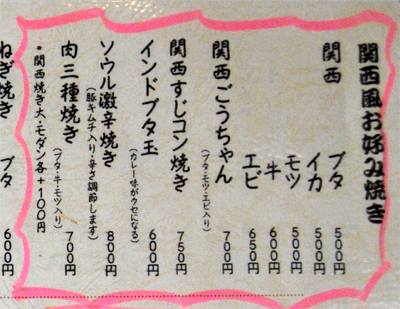 関西風お好み焼き
関西 ブタ 500円
イカ 500円
モツ 500円
牛 600円
エビ 650円
関西ごうちゃん (ブタ・モツ・エビ入り) 700円
関西すじコン焼き 750円
インドブタ玉 (カレー味がクセになる) 600円
ソウル激辛焼き (豚キムチ入り・辛さ調節します) 800円
肉三種焼き (ブタ・牛・モツ入り) 700円
・関西焼き大・モダン各+100円
ねぎ焼き ブタ 600円